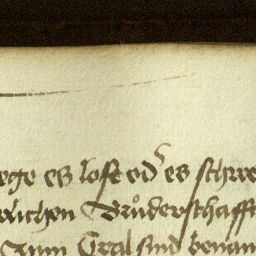 ege es lose od es schree
rlichen Brůderschafft
Zum Gral sind benan